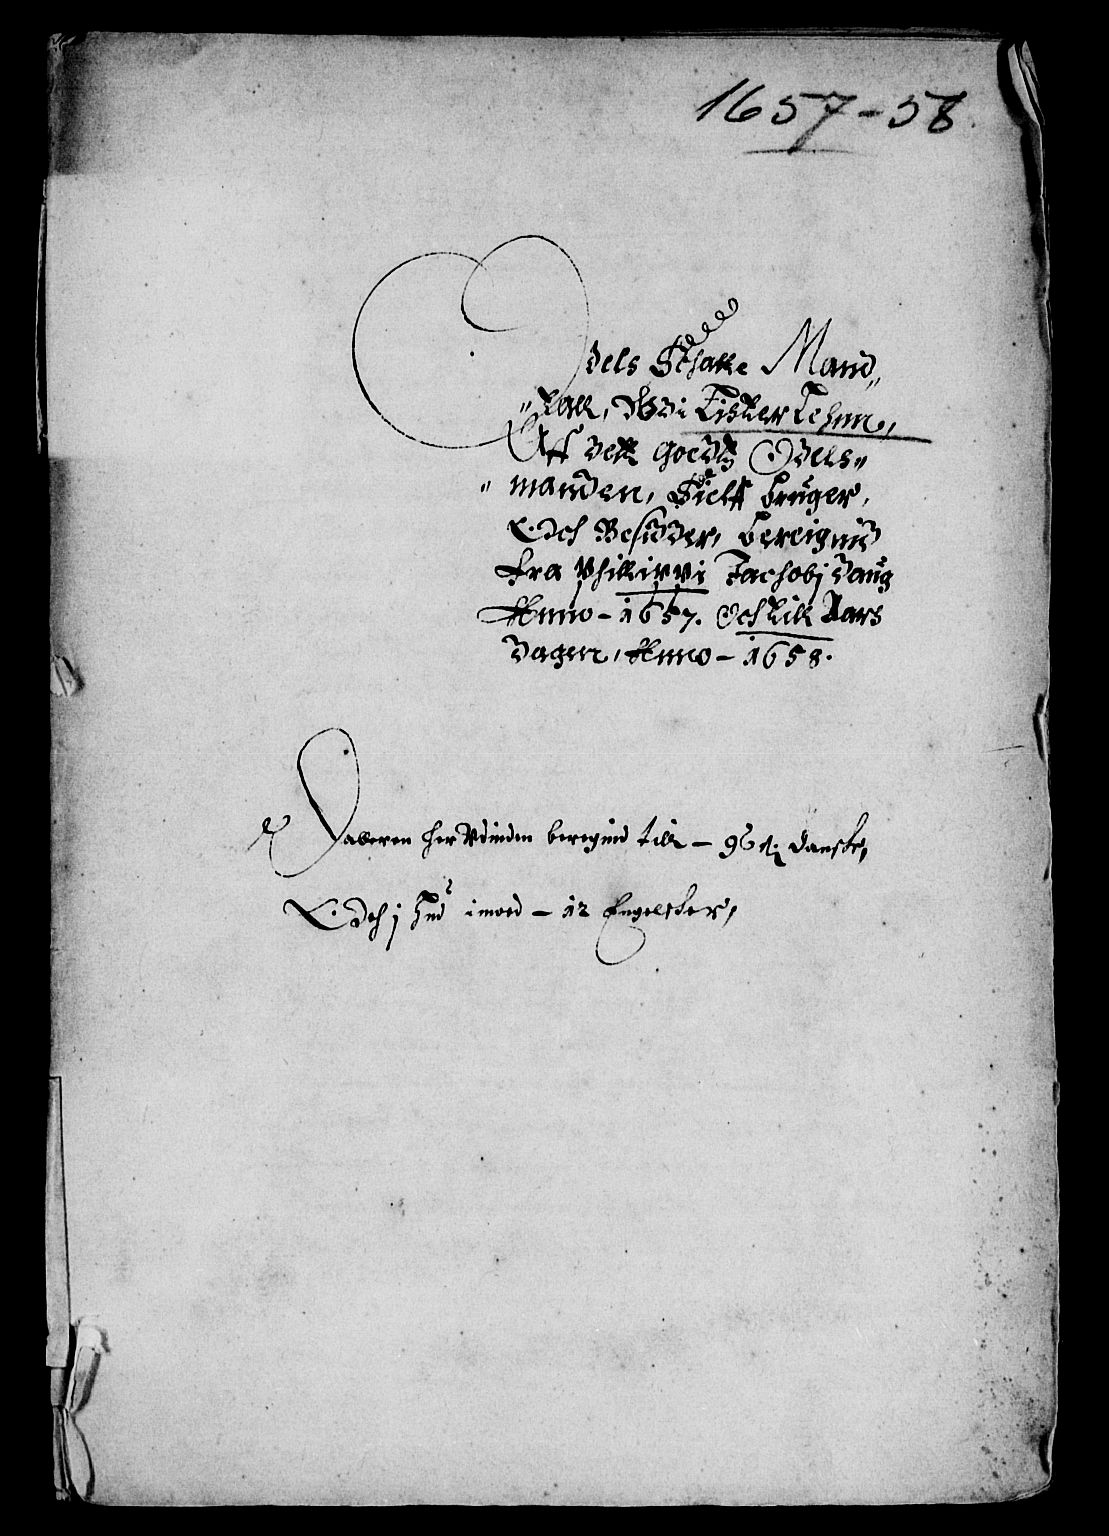 1657-58.
Odels Schatte Mand„
„tall, Wdi Lister Lehnn,
Aff dett Goedtz Odels„
„manden, Sielff bruger,
Och Besidder, bereignid
fra Phillippi Jachobj daug
Anno - 1657. Och till Aars
dagen, Anno - 1658.
Daleren her Vdinden beregind till - 96 ß danske,
Och j hud imod - 12 Engelsker,